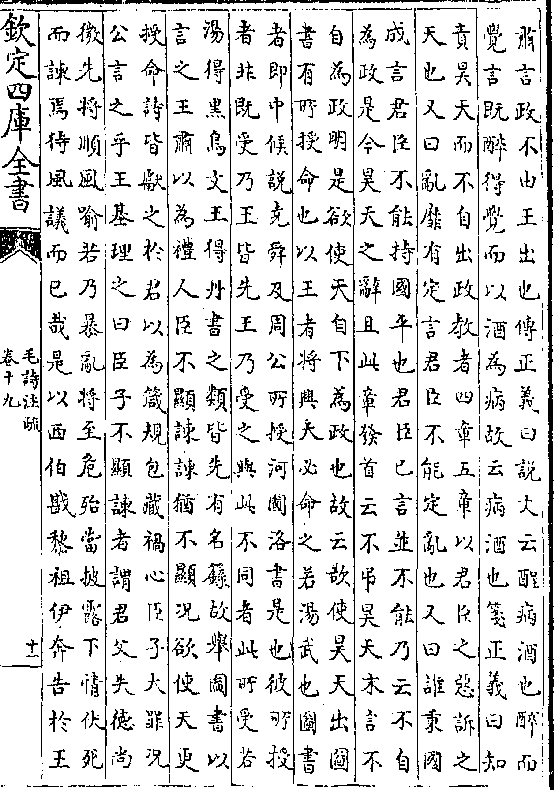 肅言政不由王出也傳正義曰說文云酲病酒也醉而
覺言既醉得覺而以酒為病故云病酒也箋正義曰知
責昊天而不自出政教者四章五章以君臣之惡訴之
天也又曰亂靡有定言君臣不能定亂也又曰誰秉國
成言君臣不能持國平也君臣已言並不能乃云不自
為政是今昊天之辭且此章發首云不弔昊天末言不
自為政明是欲使天自下為政也故云欲使昊天出圖
書有所授命也以王者將興天必命之若湯武也圖書
者即中候說堯舜及周公所授河圖洛書是也彼所授
者非既受乃王皆先王乃受之與此不同者此所受若
湯得黑烏文王得丹書之類皆先有名籙故舉圖書以
言之王肅以為禮人臣不顯諫諫猶不顯況欲使天更
授命詩皆獻之於君以為箴規包藏禍心臣子大罪況
公言之乎王基理之曰臣子不顯諫者謂君父失德尚
微先將順風喻若乃暴亂將至危殆當披露下情伏死
而諫焉待風議而已哉是以西伯戡黎祖伊奔告於王
欽定四庫全書
毛詩注疏
卷十九
十一